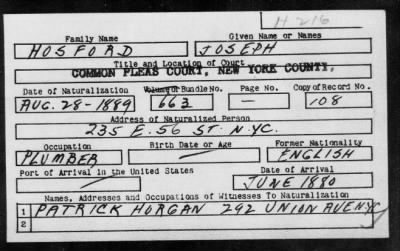 H 216
Family Name Given Name or Names
HOSFORD JOSEPH
Title and Location of Court
COMMON PLEAS COURT, NEW YORK COUNTY.
Date of Naturalization Volume or Bundle No. Page No. Copy of Record No.
AUG. 28-1889 663 — 108
Address of Naturalized Person
235 E. 56 ST. N.Y.C.
Occupation Birth Date or Age Former Nationality
PLUMBER — ENGLISH
Port of Arrival in the United States Date of Arrival
— JUNE 1880
Names, Addresses and Occupations of Witnesses To Naturalization
1 PATRICK HORGAN 292 UNION AVE NYC
2